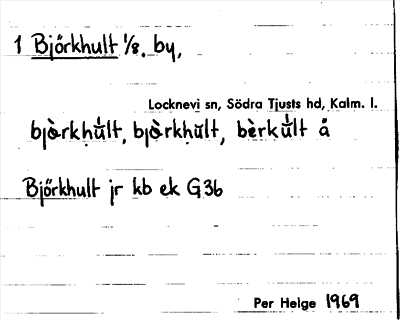 1 Björkhult 1/8. by,
Locknevi sn, Södra Tjusts hd, Kalm. l.
bjòrkhu̇lt, bjòrkhult, bèrkult å
Björkhult jr kb ek G36
Per Helge 1969